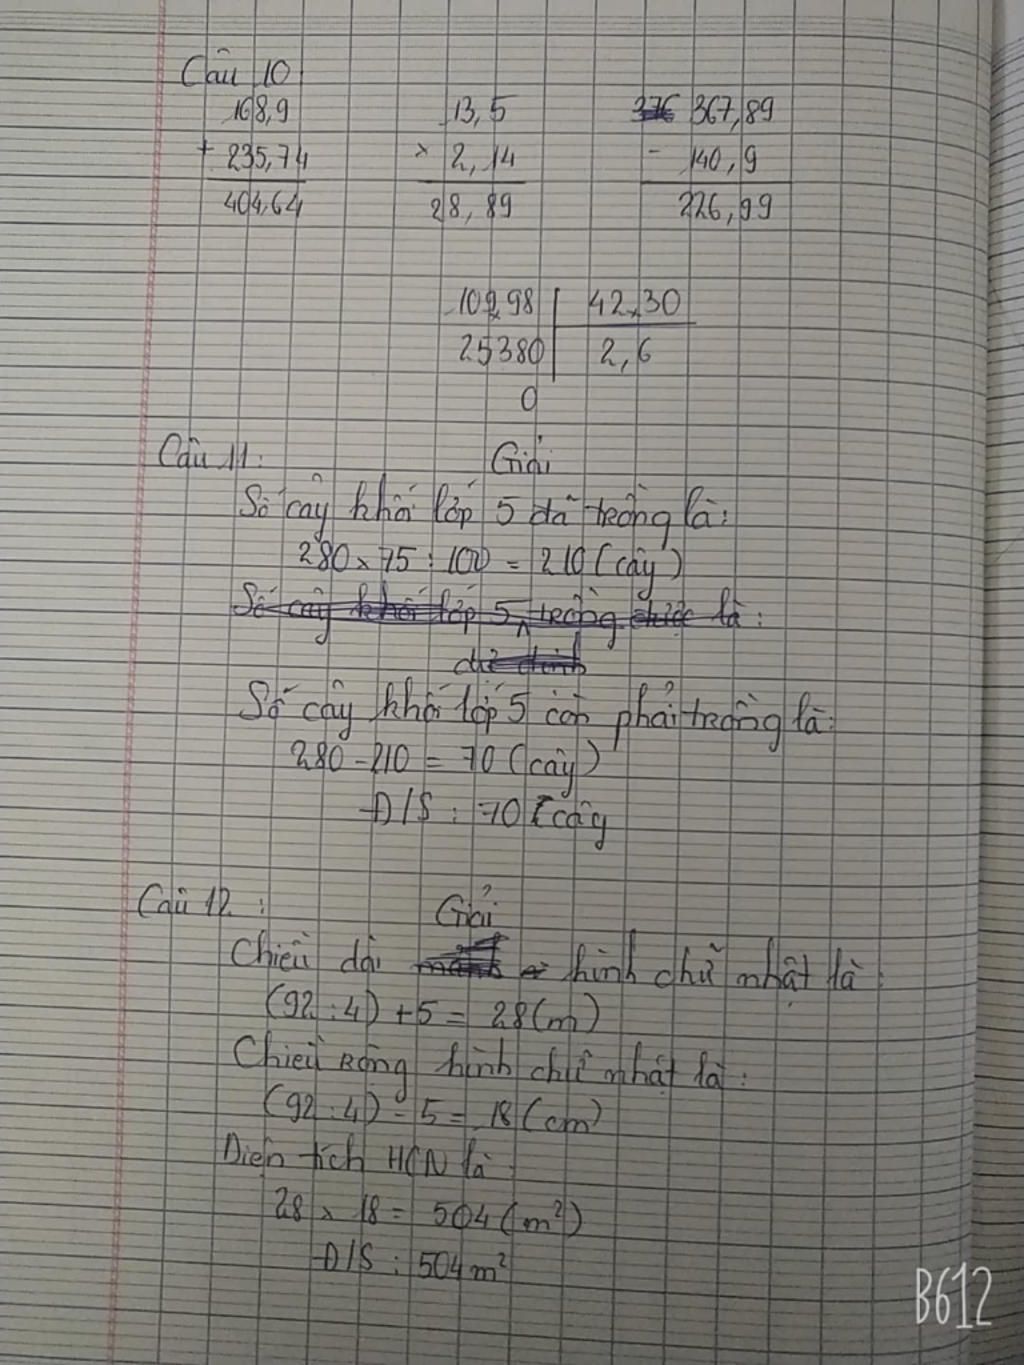 Câu 10
168,9
+ 235,74
404,64
13,5
× 2,14
28,89
367,89
- 140,9
226,99
109,98 | 42,30
25380 | 2,6
0
Câu 11:
Giải
Số cây khối lớp 5 đã trồng là:
280 × 75 : 100 = 210 (cây)
Số cây khối lớp 5 trồng được là:
dự định
Số cây khối lớp 5 còn phải trồng là:
280 - 210 = 70 (cây)
Đ/S : 70 cây
Câu 12 :
Giải
Chiều dài hình chữ nhật là :
(92 : 4) + 5 = 28 (m)
Chiều rộng hình chữ nhật là :
(92 : 4) - 5 = 18 (cm)
Diện tích HCN là
28 × 18 = 504 (m²)
Đ/S : 504 m²
B612